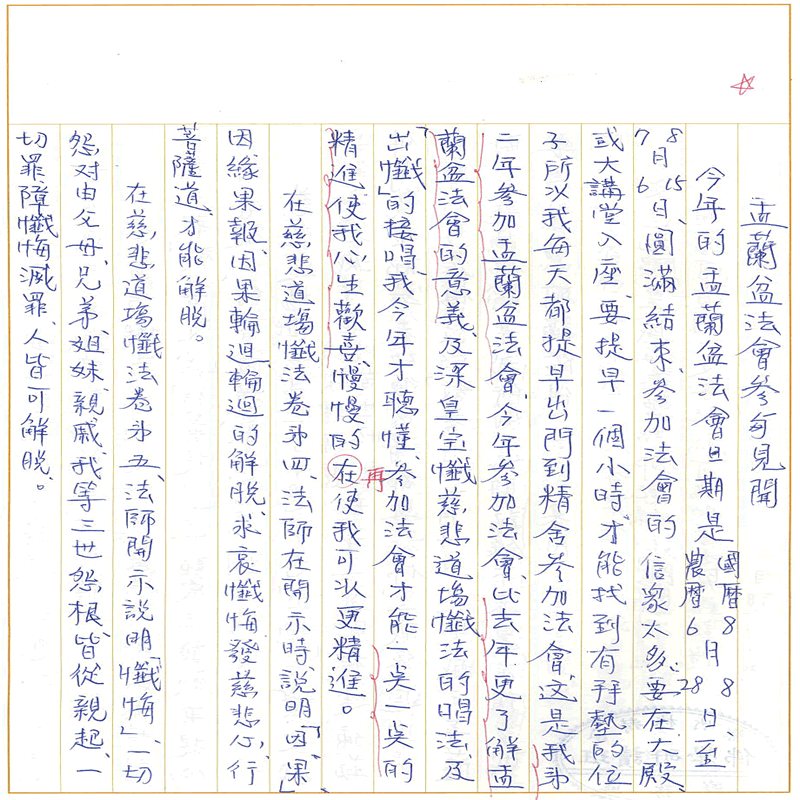 盂蘭盆法會參与見聞
今年的盂蘭盆法會日期是國曆8月8日、至
農曆6月28日、
8月15日、
7月6日、圓滿結束、參加法會的信眾太多、要在大殿、
或大講堂入座、要提早一個小時才能找到有拜墊的位
子所以我每天都提早出門到精舍參加法會、這是我第
二年參加盂蘭盆法會、今年參加法會、比去年更了解盂
蘭盆法會的意義、及深皇宝懺慈悲道場懺法的唱法、及
「出懺」的接唱、我今年才聽懂、參加法會才能一點一點的
精進使我心生歡喜、慢慢的在使我可以更精進。
再
在慈悲道場懺法卷第四、法師在開示時、說明「因、果」
因緣果報、因果輪迴、輪迴的解脫、求哀懺悔、發慈悲心、行
菩薩道、才能解脫。
在慈悲道場懺法卷第五、法師開示說明「懺悔」、一切
怨对由父母、兄弟、姐妹、親戚、我等三世怨根、皆從親起、一
切罪障懺悔滅罪、人皆可解脫。